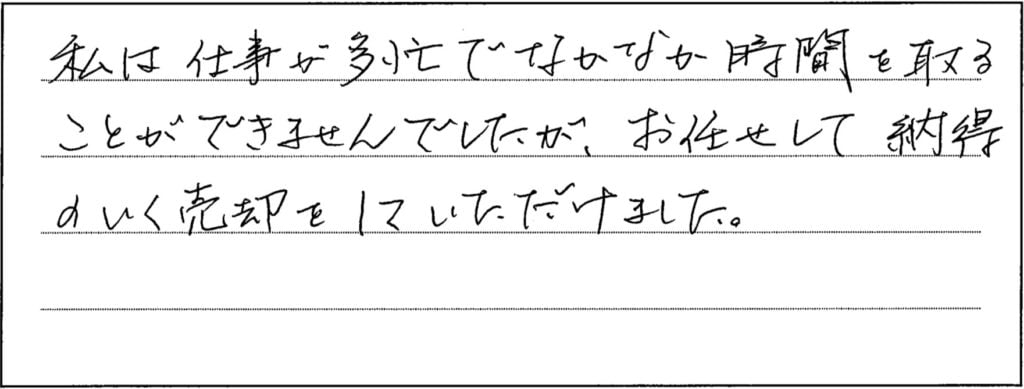 私は仕事が多忙でなかなか時間を取る
ことができませんでしたが、お任せして納得
のいく売却をしていただけました。